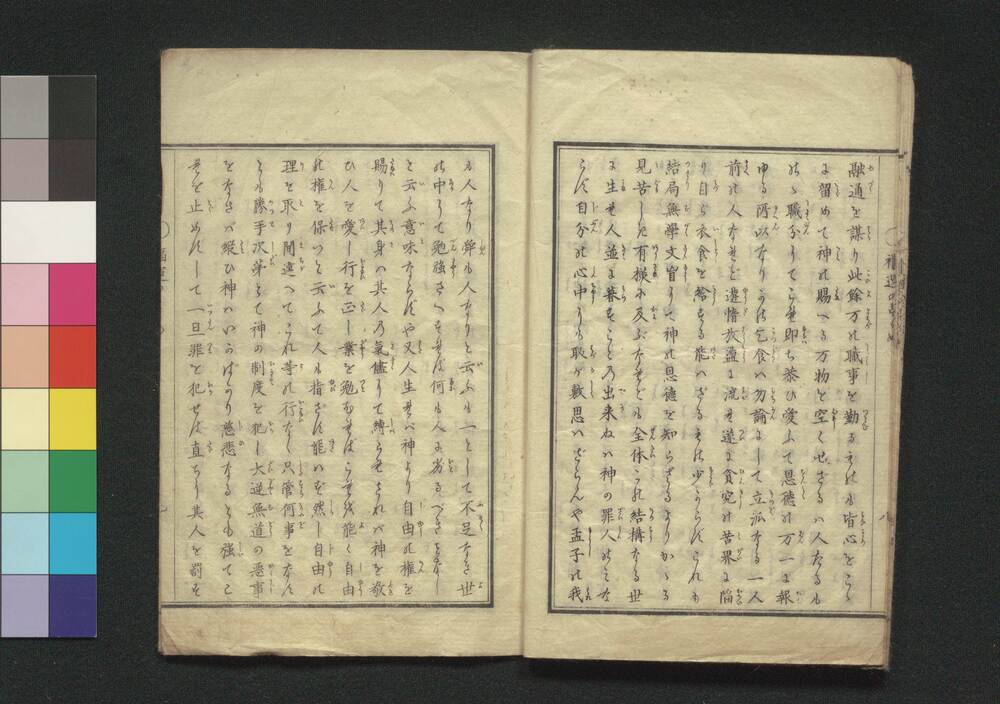 融通を謀り此餘万の職事を勤る者も皆心をこゝ
に留めて神の賜へる万物を空くせざるハ人たるも
のゝ職分にしてこれ即ち恭ひ愛ふて恩徳の万一に報
ゆる所以なり
乞食ハ勿論にして立派なる一人
前の人なれど遊惰放蕩に流れ遂に貧究の苦界に陥
り自ら衣食を給する能ハざるものは少からだこれも
結局無學文盲にして神の恩徳を知らざるよりかゝる
見苦しき有様に及ぶなれども全体この結構なる世
に生れ人並に暮すことの出来ぬハ神の罪人の
自分の心中にも取が敷思ハざらんや孟子の我
も人なり舜も人なりと云ふも一として不足なき世
の中にて勉強さへすれば何も人に劣るべき
と云ふ意味ならだや又人生れバ神より自由の権を
賜りて其身ハ其人の氣儘にて縛らせされバ神を敬
ひ人を愛し行を正し業を勉むればこそ能く自由
の権を保つと云ふて人も指ざす能ハだ然し自由の
理を取り間違へてこれ等の行なく只管何事をなすに
も勝手次第とて神の制度を犯し大逆無道の悪事
をなさバ縦ひ神ハいかばかり慈悲なるとも強てこ
れを止めだして一旦罪を犯せは直ちに其人を罰す